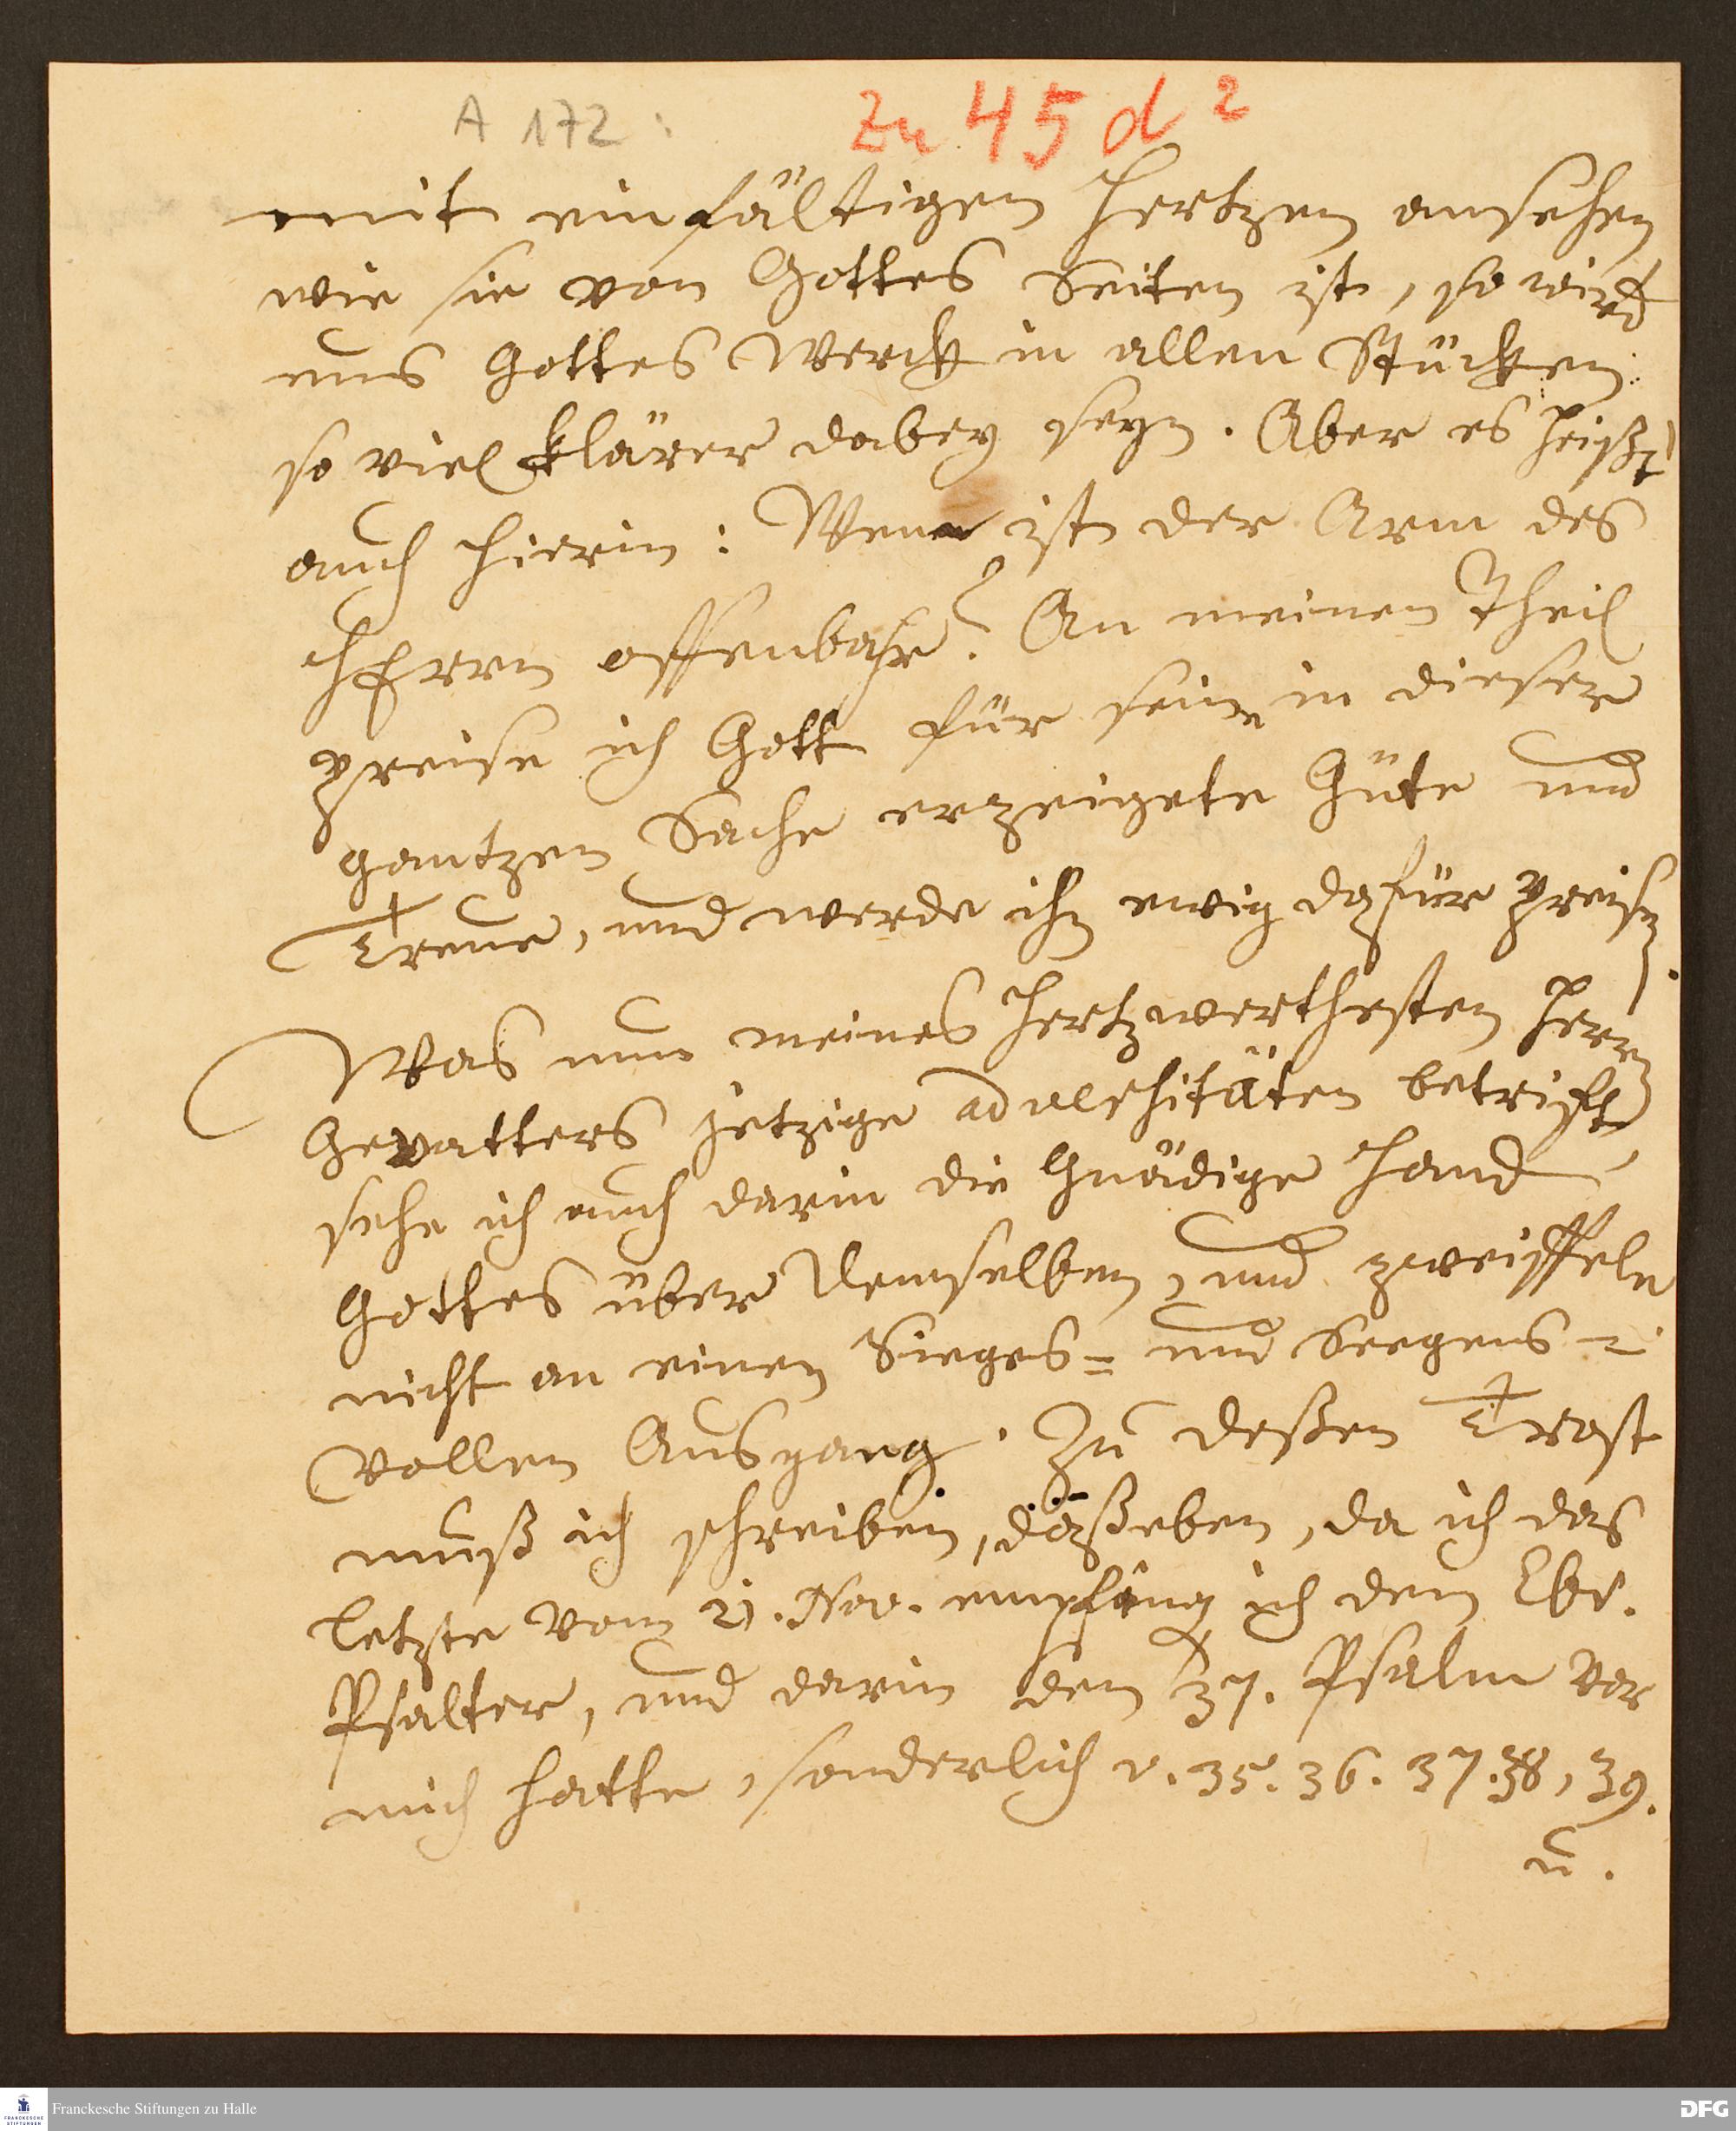 A 172:
Zu 45 d 2
mit einfältigen Hertzen ansehen
wie sie von Gottes Seiten ist, so wird
uns Gottes Werck in allen Stücken
so viel klärer dabey seyn. Aber es heißt
auch hierin: Wem ist der Arm des
HErrn offenbahr? An meinen Theil
preise ich Gott für seine in dieser
gantzen Sache erzeigete Güte und
Treue, und werde ihn ewig dafür preisen.
Was nun meines Hertzwerthesten Herrn
Gevatters jetzige adversitäten betrifft,
sehe ich auch darin die Gnädige Hand
Gottes über demselben, und zweiffele
nicht an einen Sieges= und Seegens-
vollen Ausgang. Zu deßen Trost
muß ich schreiben, daß eben, da ich das
letzte vom 21. Nov. empfing ich den Ebr.
Psalter, und darin den 37. Psalm vor
mich hatte, sonderlich v. 35. 36. 37. 38, 39.
u.
Franckesche Stiftungen zu Halle
FRANCKESCHE
STIFTUNGEN
DFG